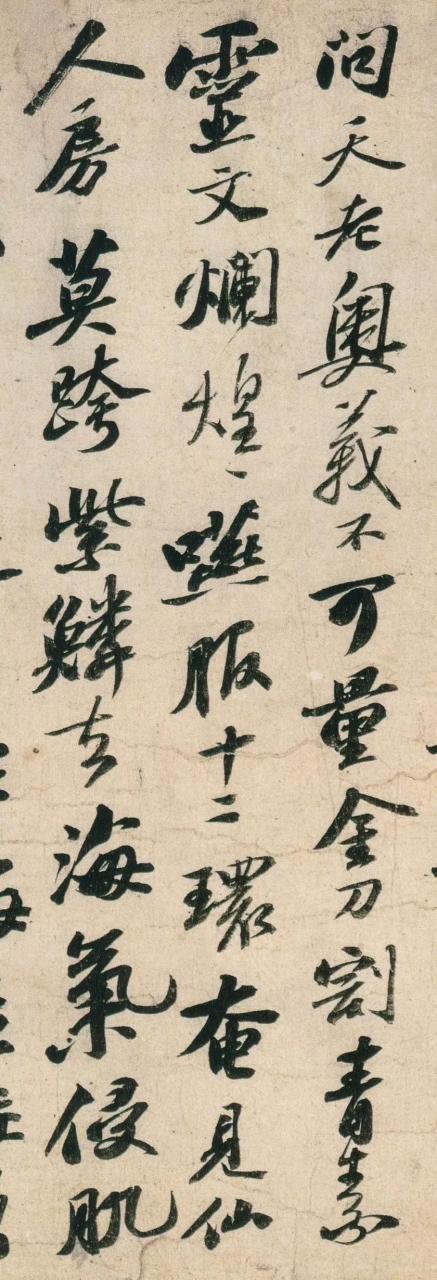 問天老奧義不可量金刀割青素
靈文爛煌〻嚥服十二環奄見仙
人房莫跨紫鱗去海氣侵肌